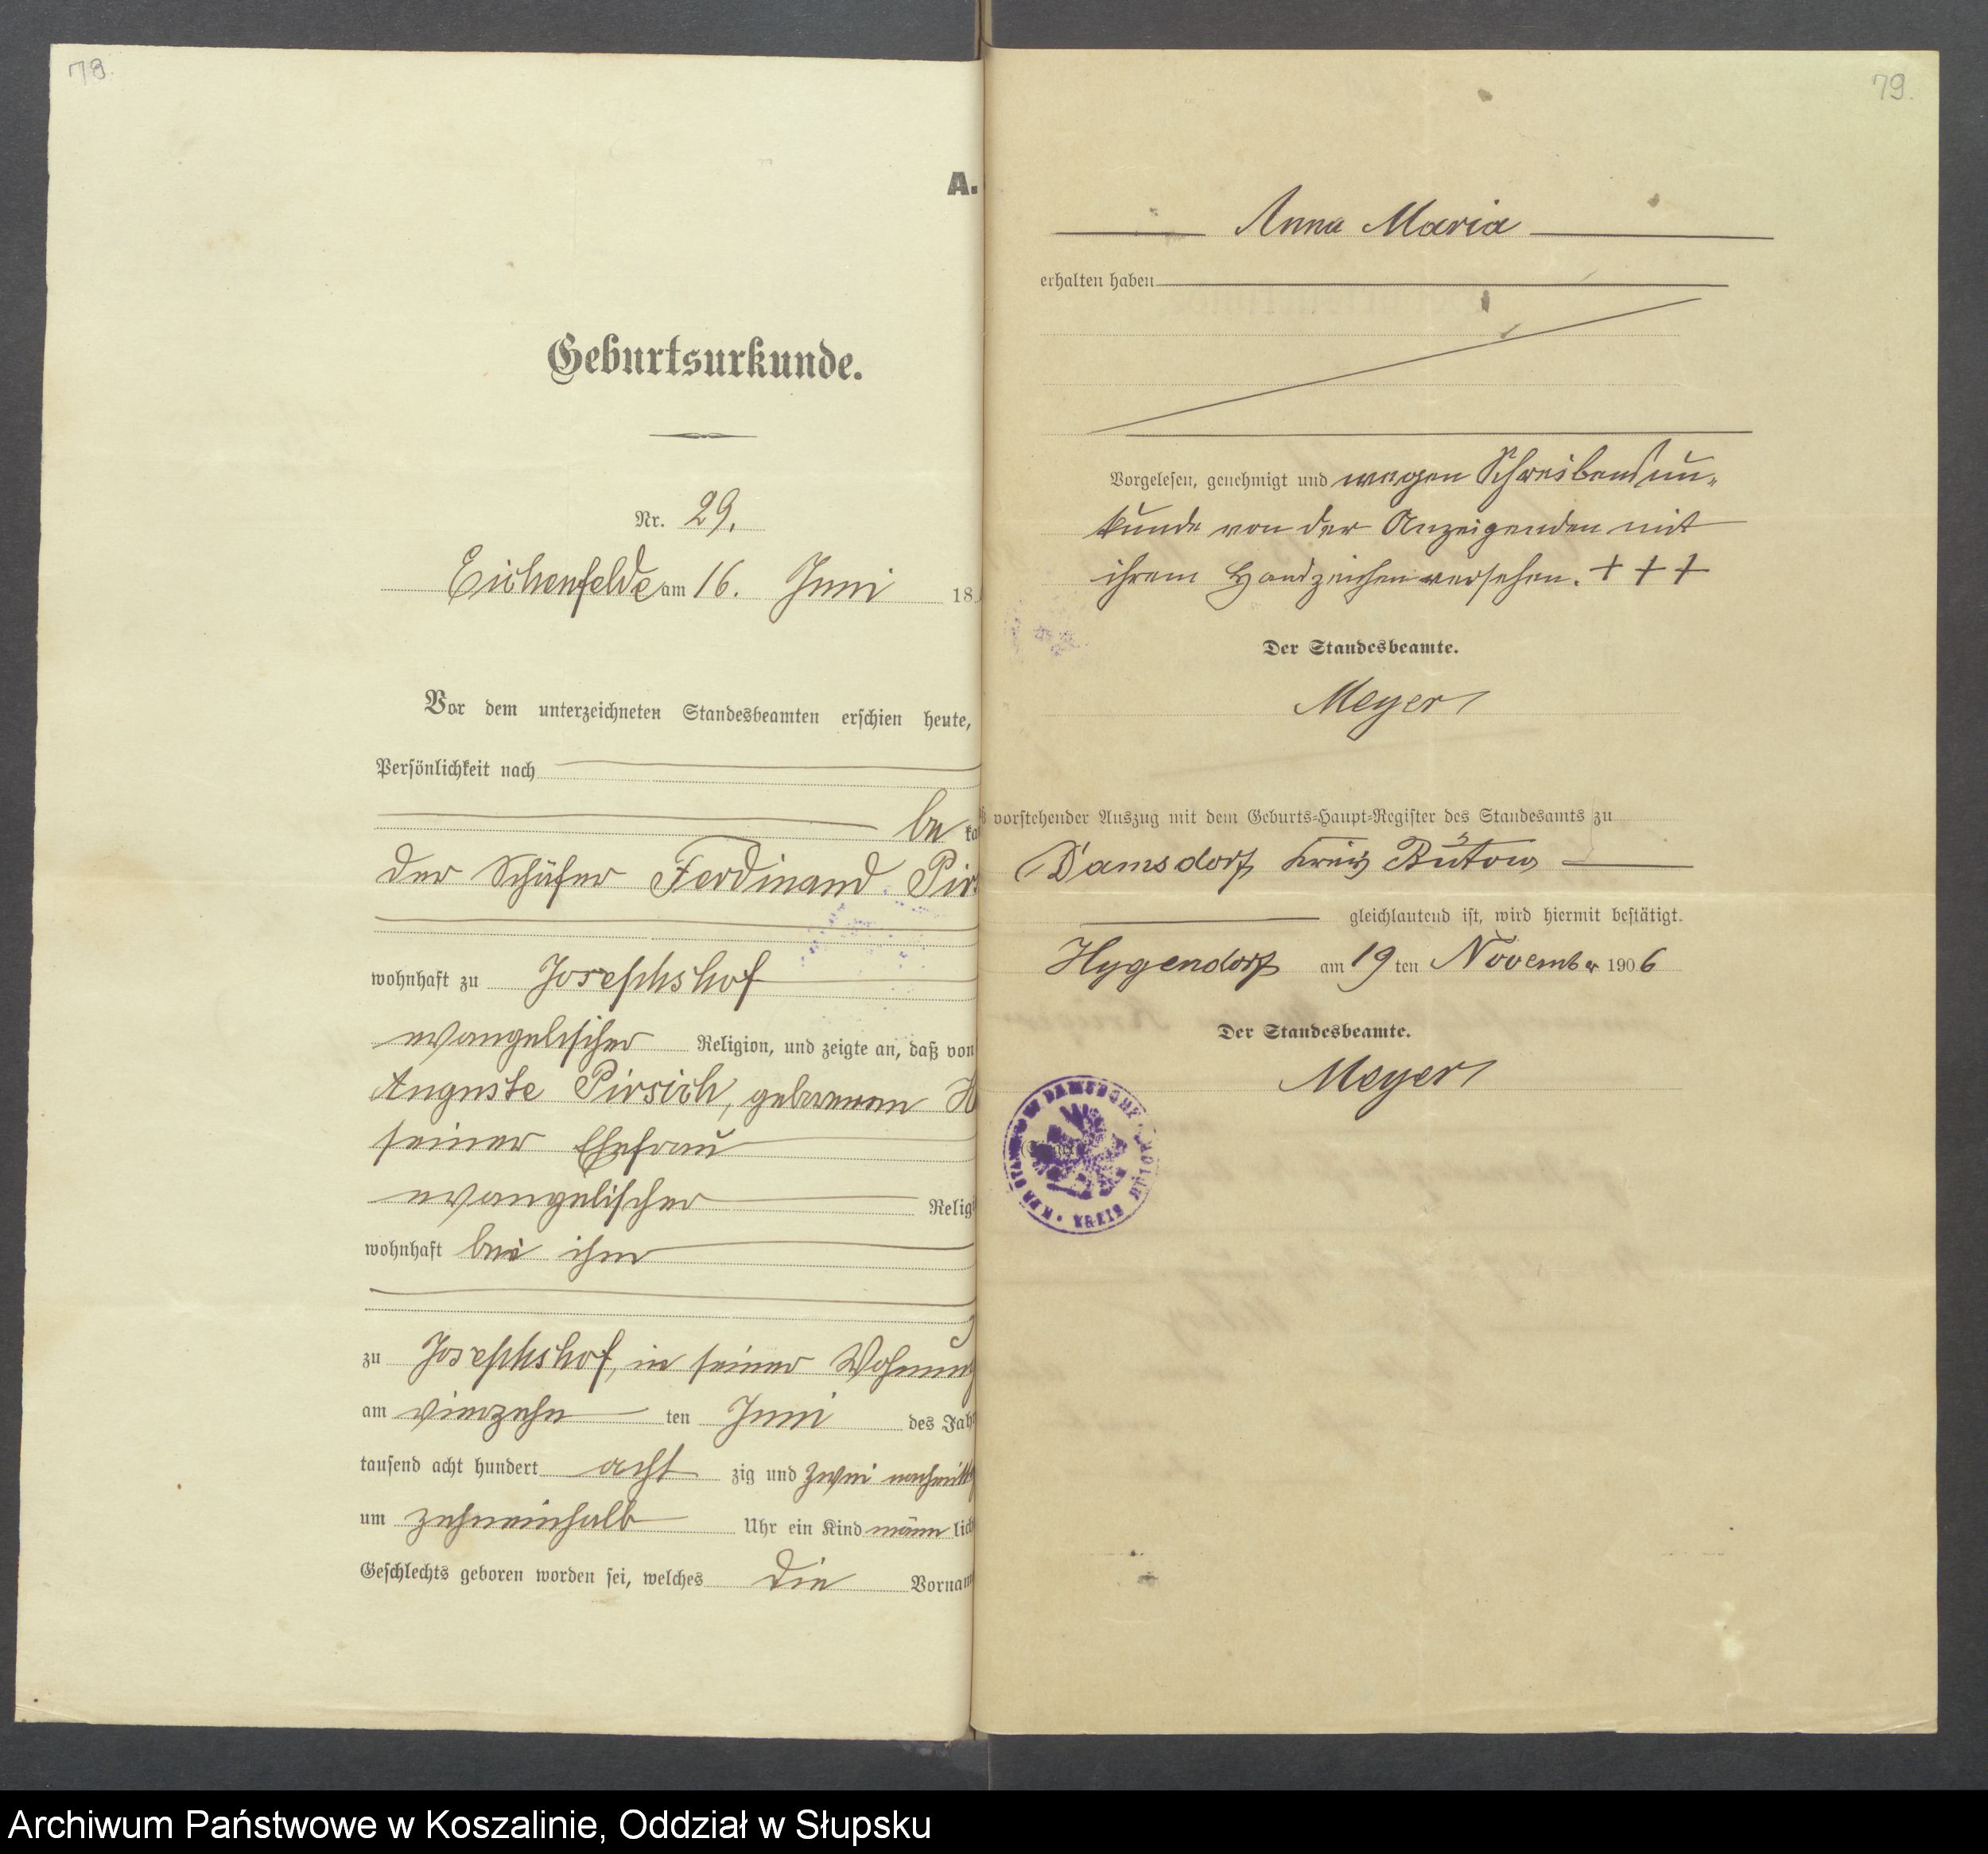 78.
A.
Geburtsurkunde.
Nr. 29.
Eichenfelde am 16. Juni 18
Vor dem unterzeichneten Standesbeamten erschien heute,
Persönlichkeit nach
be
der Schäfer Ferdinand Pirs
wohnhaft zu Josephshof
evangelischer Religion, und zeigte an, daß von
Auguste Pirsich, geborenen H
seiner Ehefrau
evangelischer Relig
wohnhaft bei ihm
zu Josephshof, in seiner Wohnung
am vierzehn ten Juni des Jah
tausend acht hundert acht zig und zwei nachmittags
um zehneinhalb Uhr ein Kind männ lich
Geschlechts geboren worden sei, welches die Vornam
79.
Anna Maria
erhalten haben
Vorgelesen, genehmigt und wegen Schreibensun-
kunde von der Anzeigenden mit
ihrem Handzeichen versehen. + + +
Der Standesbeamte.
Meyer
vorstehender Auszug mit dem Geburts-Haupt-Register des Standesamts zu
Damsdorf Kreis Bütow
gleichlautend ist, wird hiermit bestätigt.
Hygendorf am 19 ten November 1906
Der Standesbeamte.
Meyer
DAMSDORF KREIS BÜTOW
Archiwum Państwowe w Koszalinie, Oddział w Słupsku